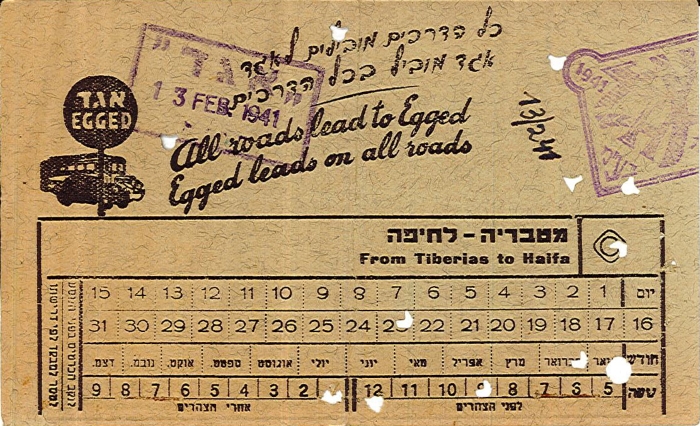 כל הדרכים מובילים לאגד
אגד מוביל בכל הדרכים
אגד
EGGED
"אגד"
13 FEB. 1941
1941
13/2 41
All roads lead to Egged
Egged leads on all roads
מטבריה - לחיפה
From Tiberias to Haifa
יום 1 2 3 4 5 6 7 8 9 10 11 12 13 14 15
16 17 18 19 20 21 22 24 25 26 27 28 29 30 31
חודש מרץ אפריל מאי יוני יולי אוגוסט ספט. אוקט. נובמ. דצמ.
שעה 5 6 7 8 9 10 11 12 2 3 4 5 6 7 8 9
לפני הצהרים אחרי הצהרים